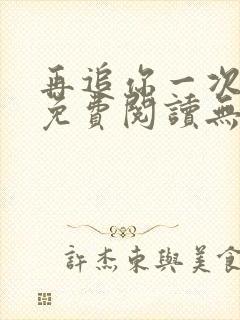 再追你一次
免費閱讀無
許杰東與美食